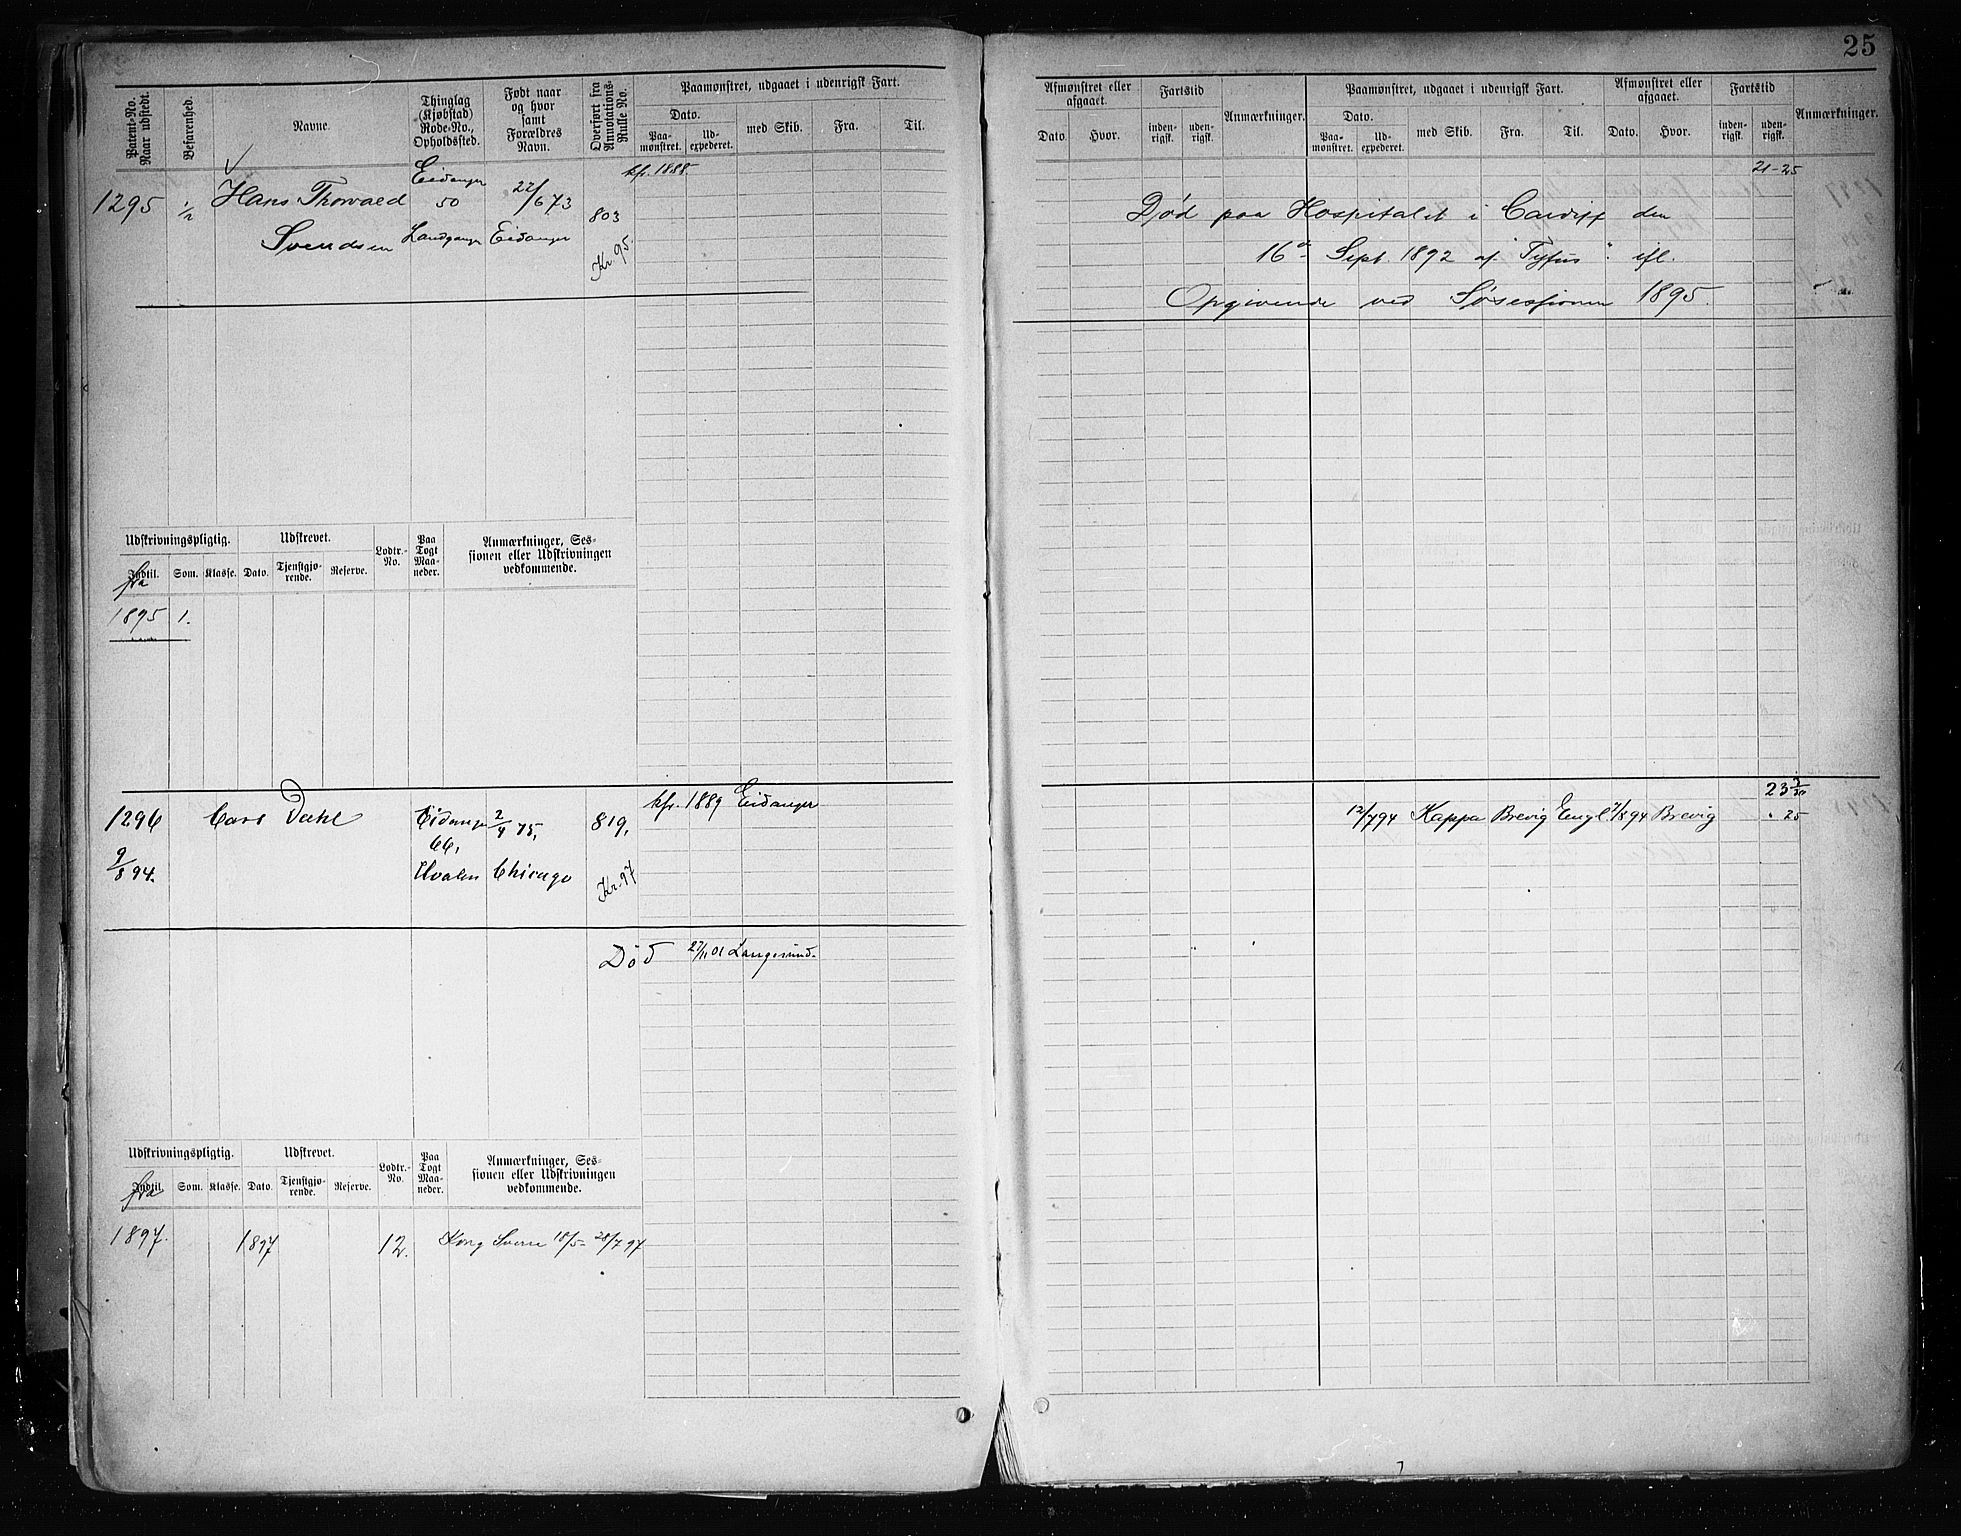 25
Patent-No. Naar udstedt.
Befarenhed.
Navne.
Thinglag (Kjøbstad) Rode-No., Opholdssted.
Født naar og hvor samt Forældres Navn.
Overført fra Annotations-Rulle No.
Paamønstret, udgaaet i udenrigsk Fart.
Dato.
Paamønstret.
Udexpederet.
med Skib.
Fra.
Til.
Afmønstret eller afgaaet.
Dato.
Hvor.
Fartstid
indenrigsk.
udenrigsk.
Anmærkninger.
Paamønstret, udgaaet i udenrigsk Fart.
Dato.
Paamønstret.
Udexpederet.
med Skib.
Fra.
Til.
Afmønstret eller afgaaet.
Dato.
Hvor.
Fartstid
indenrigsk.
udenrigsk.
Anmærkninger.
kfr. 1888
21-25
1295 1/2 Hans Thorvald Eidanger 22/6 73 803
50
Svendsen Landganger Eidanger
Kr. 95.
Død paa Hospitalet i Cardiff den
16de Sept. 1892 af "Tyfus" ifl.
Opgivende ved Søsessionen 1895.
Udskrivningspligtig.
Udskrevet.
Lodtr.-No.
Paa Togt Maaneder.
Anmærkninger, Sessionen eller Udskrivningen vedkommende.
Indtil. Som. Klasse. Dato. Tjenstgjørende. Reserve.
fra
1895 1.
1296 Carl Dahl Eidanger 2/4 75, 819,
66,
9/8 94. Hvalen Chicago
Kr. 97
kfr. 1889 Eidanger
12/7 94 Kappa Brevig Engl. 7/8 94 Brevig
" 25
Død 27/11 01 Langesund.
Udskrivningspligtig.
Udskrevet.
Lodtr.-No.
Paa Togt Maaneder.
Anmærkninger, Sessionen eller Udskrivningen vedkommende.
Indtil. Som. Klasse. Dato. Tjenstgjørende. Reserve.
fra
1897. 1897 12. Kong Sverre 18/5 - 28/7 97